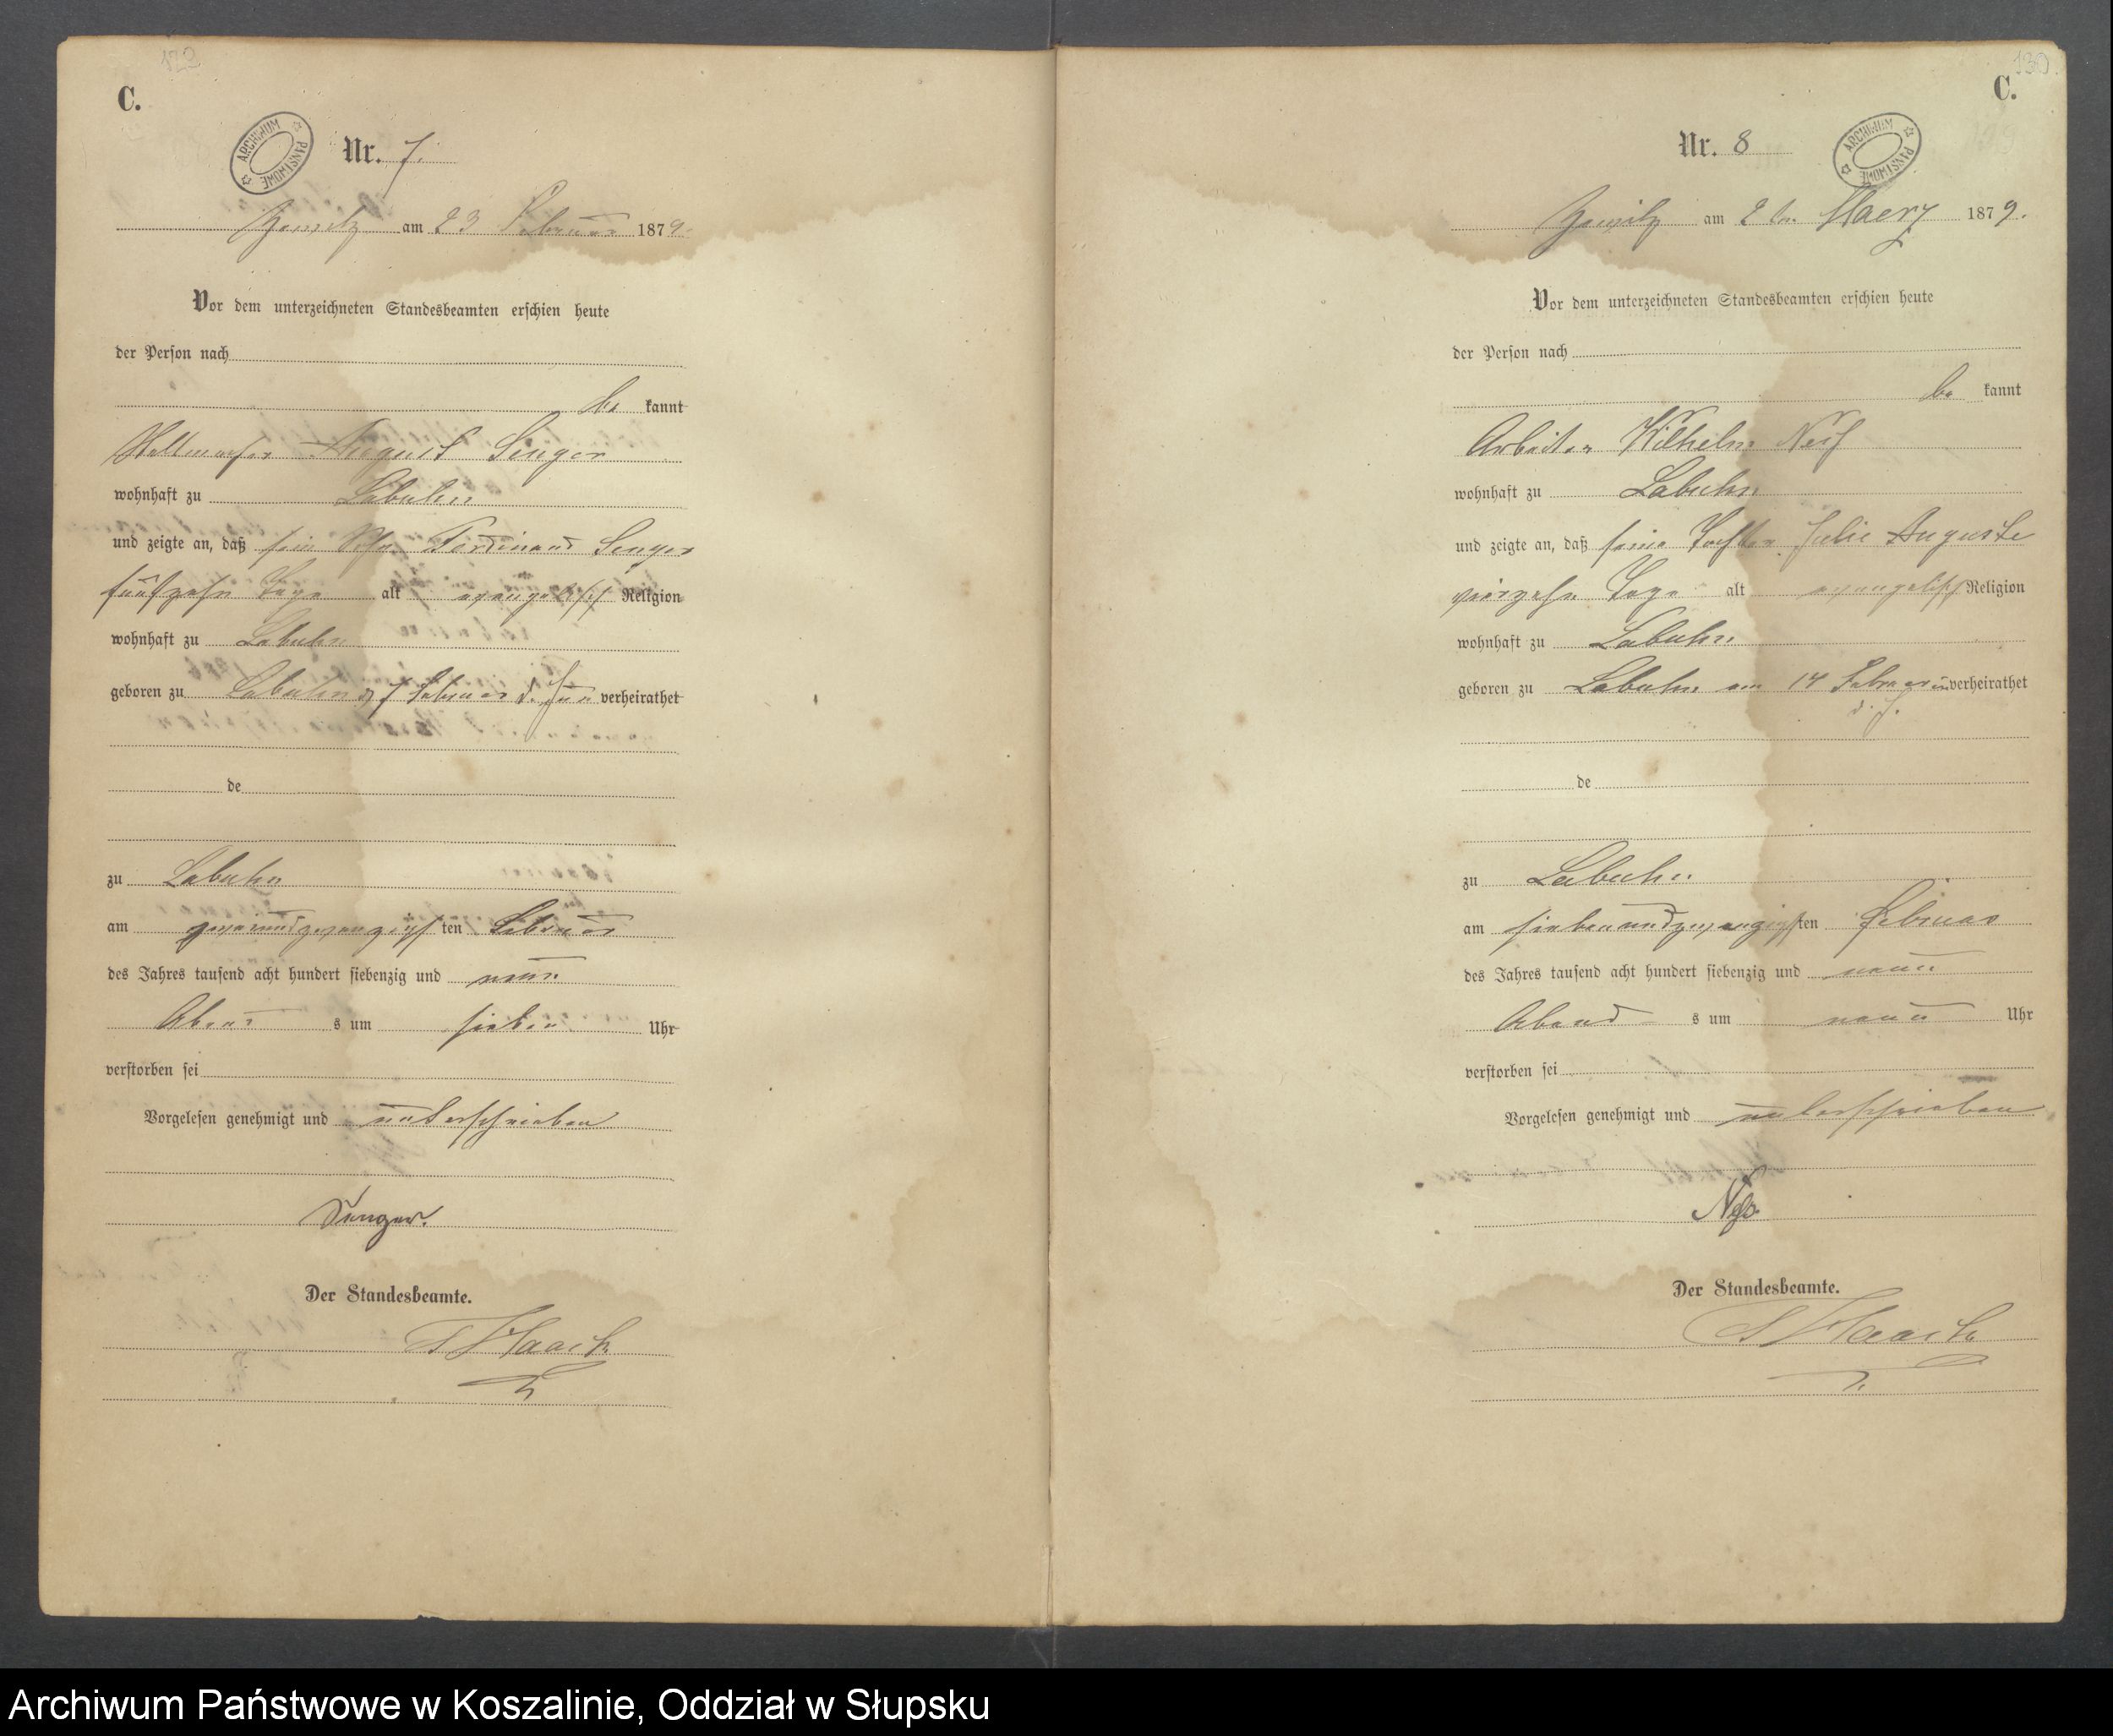 129
C.
Nr. 7.
ARCHIWUM PAŃSTWOWE
am 23 Februar 1879.
Vor dem unterzeichneten Standesbeamten erschien heute
der Person nach
be kannt
August Senger
wohnhaft zu Labuhn
und zeigte an, daß sein Sohn Ferdinand Senger
fünfzehn Tage alt evangelisch Religion
wohnhaft zu Labuhn
geboren zu Labuhn 7 Februar d. J. un verheirathet
de
zu Labuhn
am zweiundzwanzigsten Februar
des Jahres tausend acht hundert siebenzig und neun
Abend s um sieben Uhr
verstorben sei
Vorgelesen genehmigt und unterschrieben
Senger.
Der Standesbeamte.
Haack
130
C.
Nr. 8
ARCHIWUM PAŃSTWOWE
am 2 ten Maerz 1879.
Vor dem unterzeichneten Standesbeamten erschien heute
der Person nach
be kannt
Arbeiter Wilhelm
wohnhaft zu Labuhn
und zeigte an, daß seine Tochter Julie Auguste
vierzehn Tage alt evangelisch Religion
wohnhaft zu Labuhn
geboren zu Labuhn am 14 Februar unverheirathet
d. J.
de
zu Labuhn
am siebenundzwanzigsten Februar
des Jahres tausend acht hundert siebenzig und neun
Abend s um neun Uhr
verstorben sei
Vorgelesen genehmigt und unterschrieben
Der Standesbeamte.
Haack
Archiwum Państwowe w Koszalinie, Oddział w Słupsku